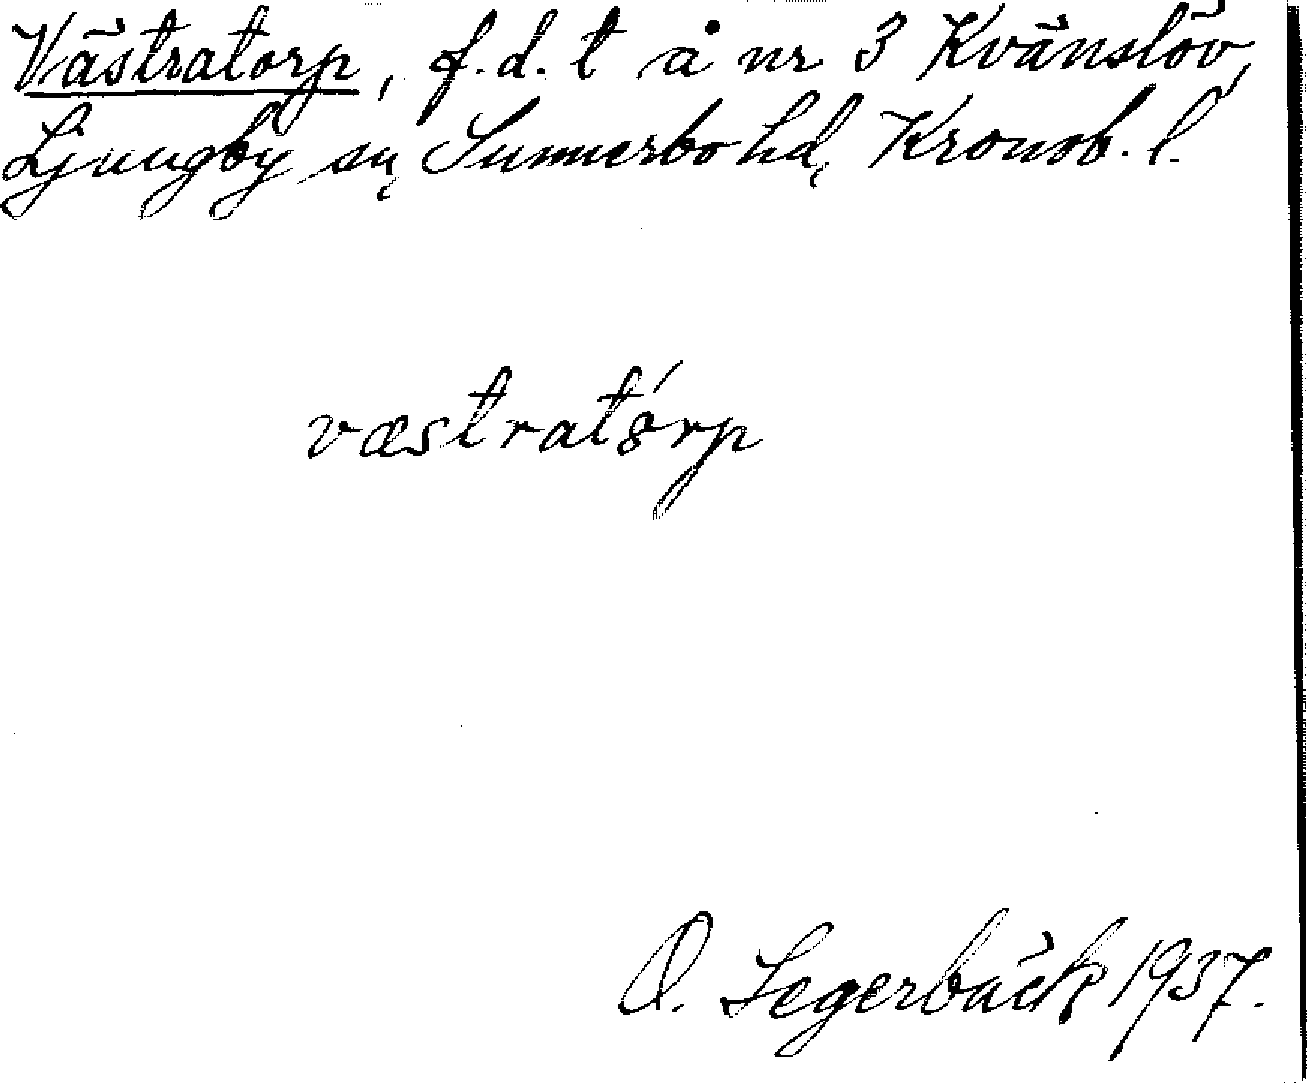 Västratorp, f.d. t å nr 3 Kvänslöv,
Ljungby sn, Sunnerbo hd, Kronob. l.
væstratórp
O. Segerbäck 1937.